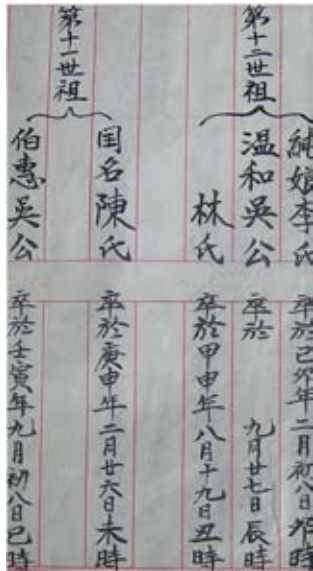 第十二世祖
純娘李氏
卒於己卯年二月初八日卯時
温和吳公
卒於 九月廿七日辰時
林氏
卒於甲申年八月十九日丑時
第十一世祖
闰名陳氏
卒於庚申年二月廿六日未時
伯惠吳公
卒於壬寅年九月初八日巳時